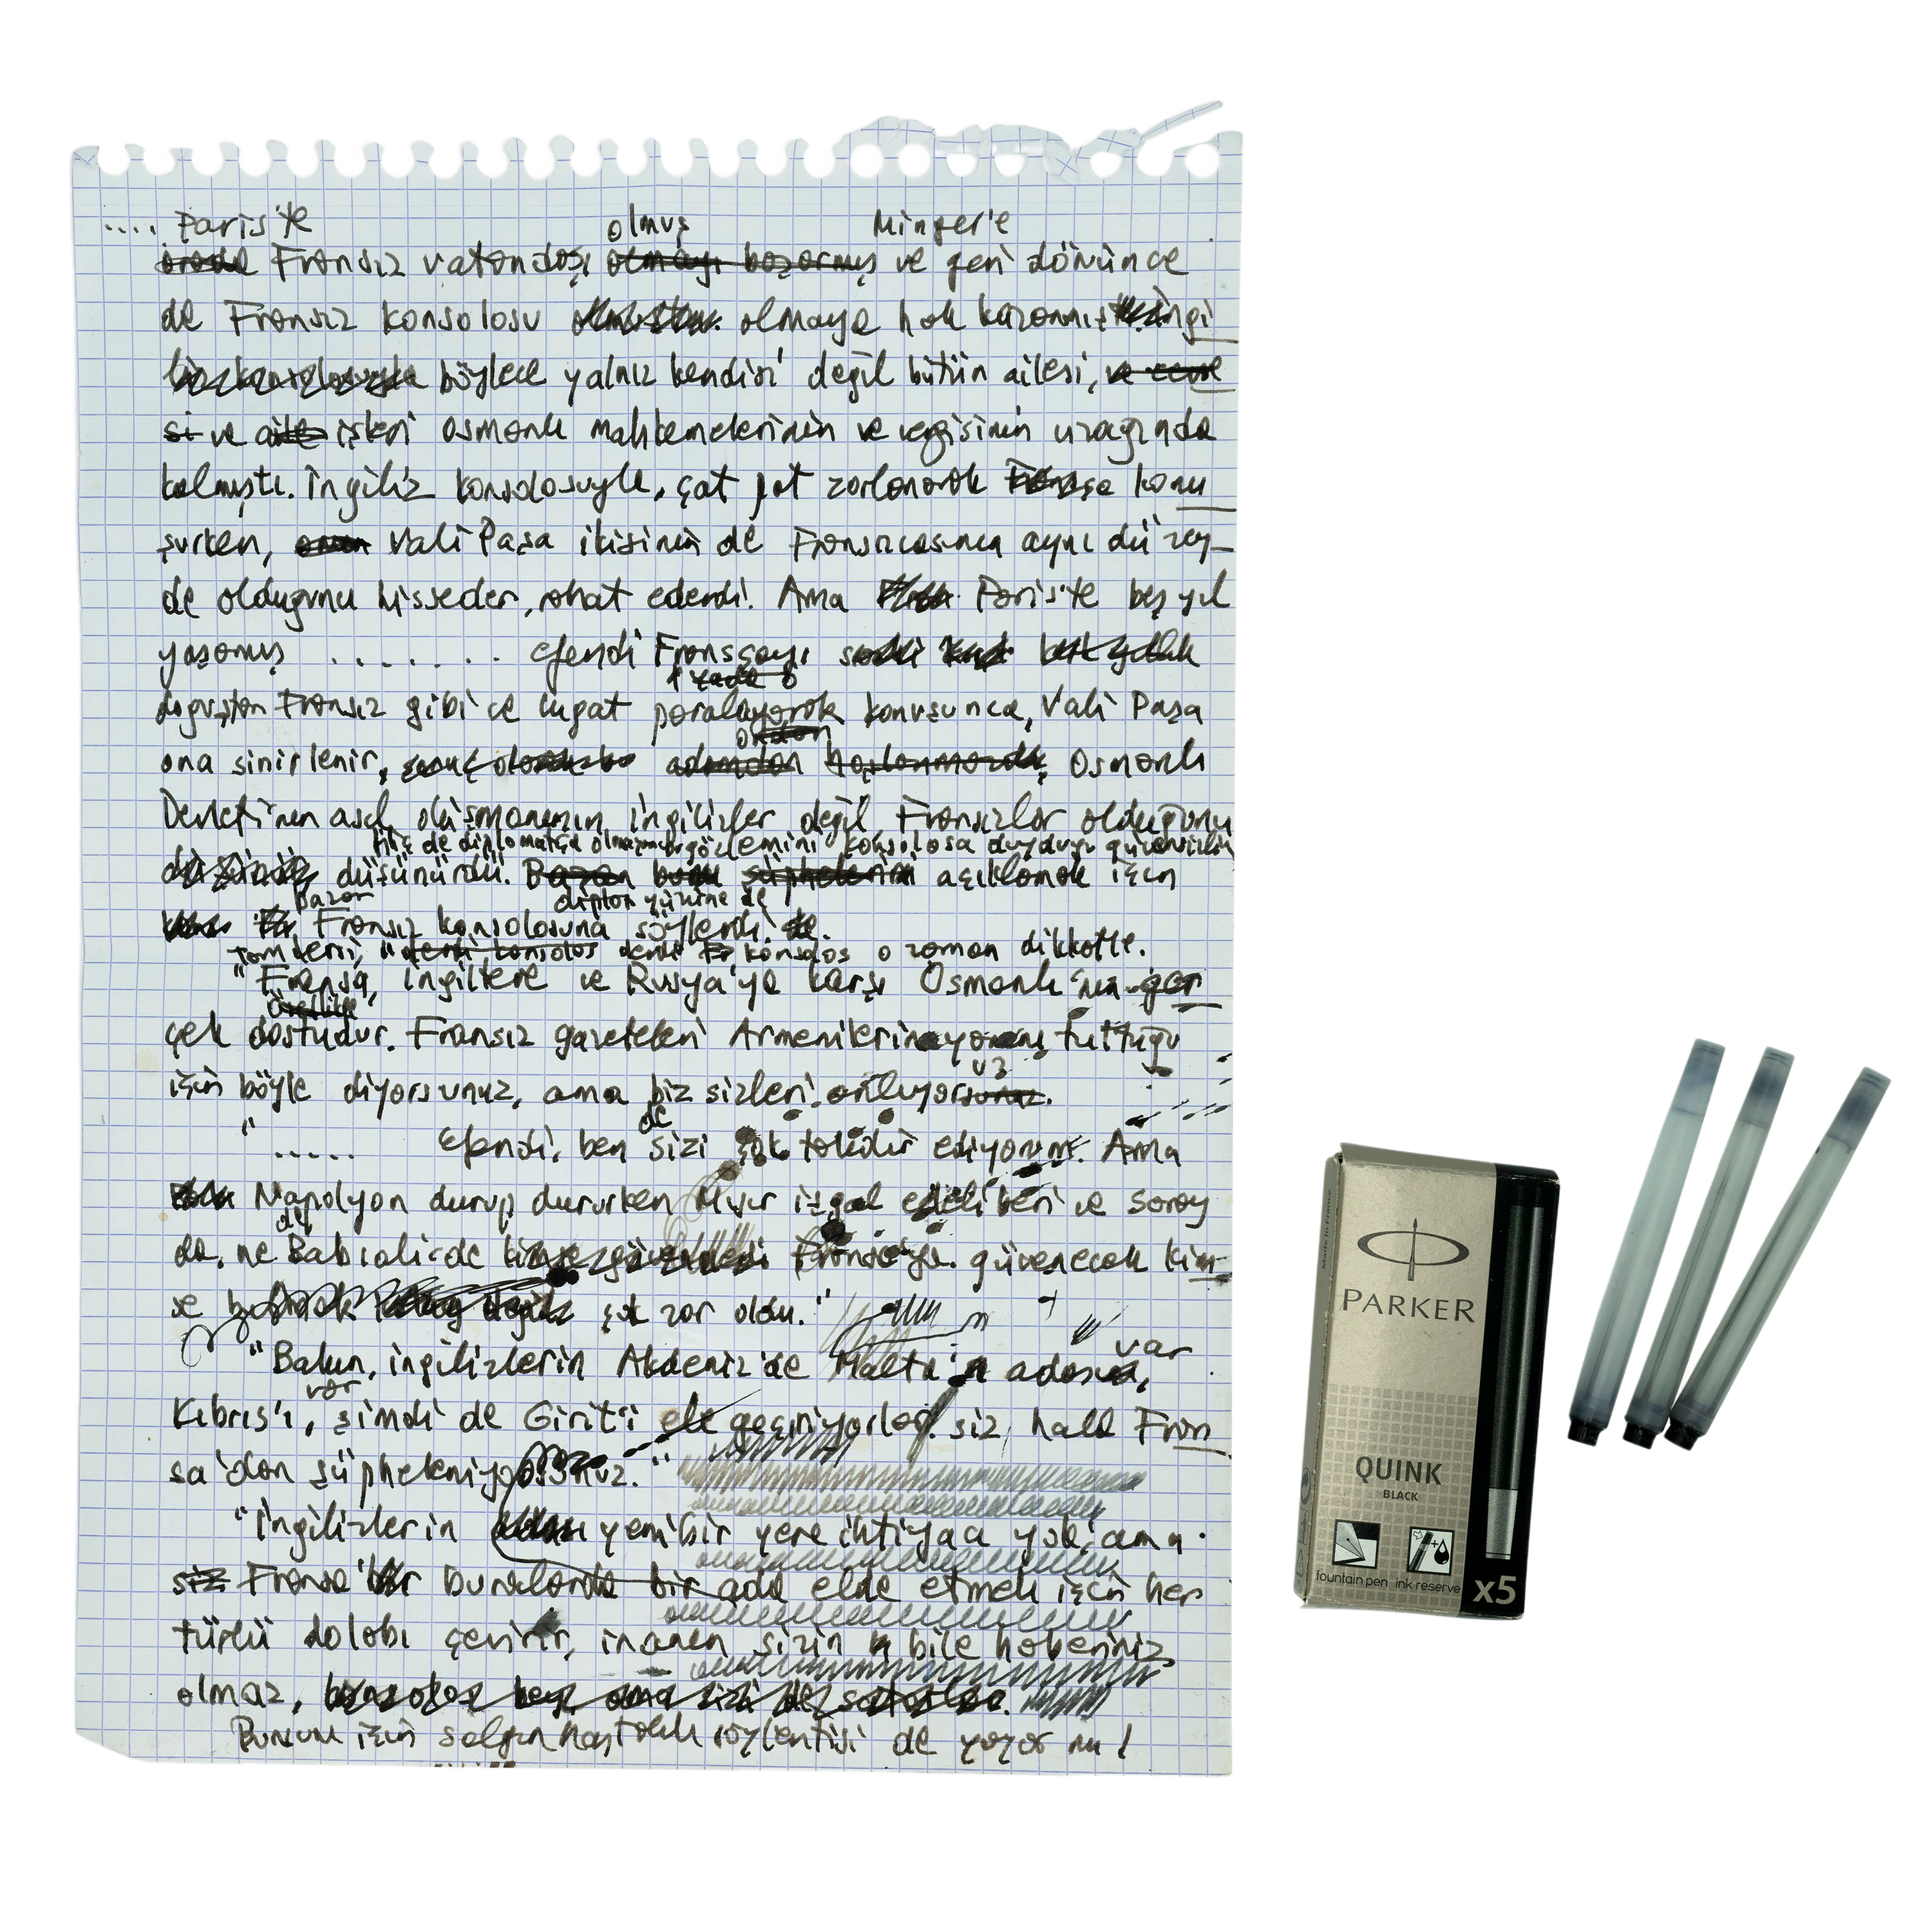 .... Paris'te olmuş Minger'e
orada Fransız vatandaşı olmayı başarmış ve geri dönünce
de Fransız konsolosu olmaya hak kazanmış İngi
böylece yalnız kendisi değil bütün ailesi, ve cevre
si ve aile işleri Osmanlı mahkemelerinin ve vergisinin uzağında
kalmıştı. İngiliz konsolosuyla, çat pat zorlanarak Fransızca konu
şurken, onun Vali Paşa ikisinin de Fransızcasının aynı düzey-
de olduğunu hisseder, rahat ederdi. Ama Paris'te beş yıl
yaşamış ........ efendi Fransçayı
doğuştan Fransız gibi ve lugat paralayarak konuşunca, Vali Paşa
ondan
ona sinirlenir, adamdan hoşlanmazdı, Osmanlı
Devleti'nin asıl düşmanının İngilizler değil Fransızlar olduğunu
hiç de diplomatça olmayan gözlemini konsolosa duyduğu güvensizliği
düşünürdü. Bazan bunu şüphelerini açıklamak için
bazan yüzüne de
Fransız konsolosuna söylerdi.
tam tersi, " derdi konsolos derdi konsolos o zaman dikkatle.
"Fransa, İngiltere ve Rusya'ya karşı Osmanlı'nın ger
özellikle
çek dostudur. Fransız gazeteleri Armenilerin yanını tuttuğu
uz
için böyle diyorsunuz, ama biz sizleri anlıyorsunuz.
de
"..... Efendi, ben sizi çok takdir ediyorum. Ama
Napolyon durup dururken Mısır işgal edeli beri ve saray
de
da, ne Babıali'de Fransa'ya güvenecek kim-
se çok zor oldu."
var
"Bakın, İngilizlerin Akdeniz'de Malta adası,
var
Kıbrıs'ı, şimdi de Girit'i ele geçiriyorlar. siz, hala Fran
sa'dan şüpheleniyorsunuz."
"İngilizlerin yeni bir yere ihtiyacı yok, ama
siz Fransa buralarda bir ada elde etmek için her
türlü dolabı çevirir, inanın sizin bile haberiniz
olmaz,
Bunun için salgın hastalık söylentisi de yayar mı!
PARKER
QUINK
BLACK
fountain pen ink reserve
x5
Made in France